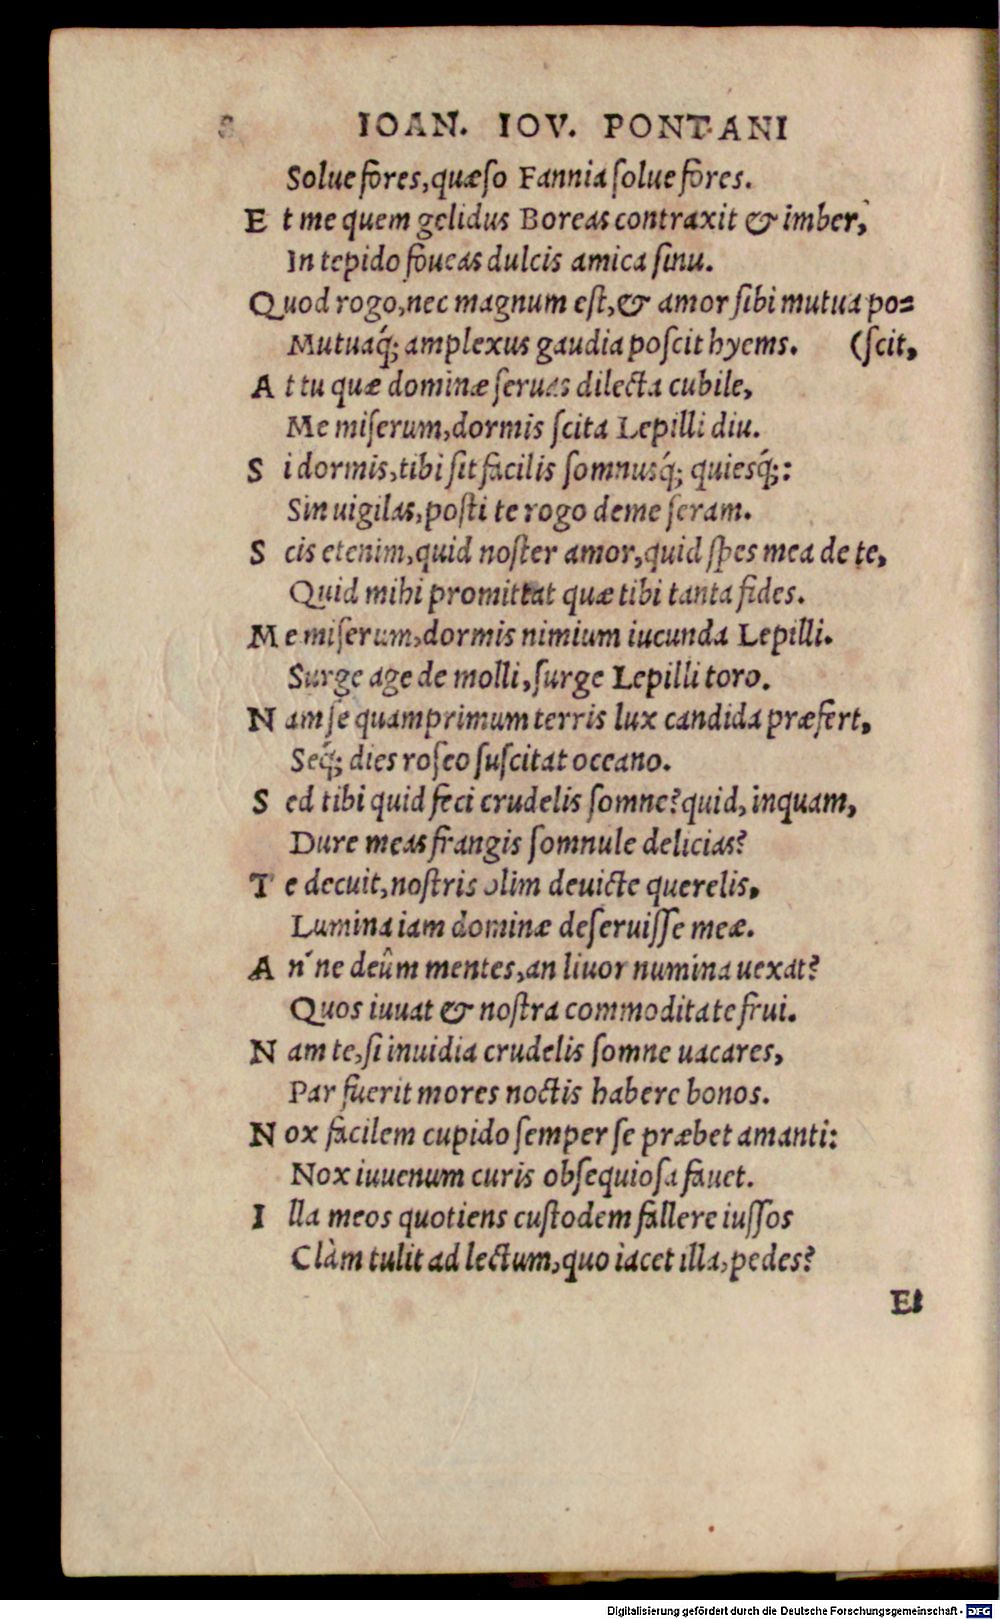 8 IOAN. IOV. PONTANI
Solue fores, quæſo Fannia ſolue fores.
E t me quem gelidus Boreas contraxit & imber,
In tepido foueas dulcis amica ſinu.
Quod rogo, nec magnum eſt, & amor ſibi mutua po=
Mutuaq́; amplexus gaudia poſcit hyems. (ſcit,
A t tu quæ dominæ ſeruas dilecta cubile,
Me miſerum, dormis ſcita Lepilli diu.
S i dormis, tibi ſit facilis ſomnusq́; quiesq́;:
Sin uigilas, poſti te rogo deme ſeram.
S cis etenim, quid noſter amor, quid ſpes mea de te,
Quid mihi promittat quæ tibi tanta fides.
M e miſerum, dormis nimium iucunda Lepilli.
Surge age de molli, ſurge Lepilli toro.
N am ſe quamprimum terris lux candida præfert,
Seq́; dies roſeo ſuſcitat oceano.
S ed tibi quid feci crudelis ſomne? quid, inquam,
Dure meas frangis ſomnule delicias?
T e decuit, noſtris olim deuicte querelis,
Lumina iam dominæ deſeruiſſe meæ.
A n´ne deûm mentes, an liuor numina uexat?
Quos iuuat & noſtra commoditate frui.
N am te, ſi inuidia crudelis ſomne uacares,
Par fuerit mores noctis habere bonos.
N ox facilem cupido ſemper ſe præbet amanti:
Nox iuuenum curis obſequioſa fauet.
I lla meos quotiens cuſtodem fallere iuſſos
Clàm tulit ad lectum, quo iacet illa, pedes?
Et
Digitalisierung gefördert durch die Deutsche Forschungsgemeinschaft - DFG